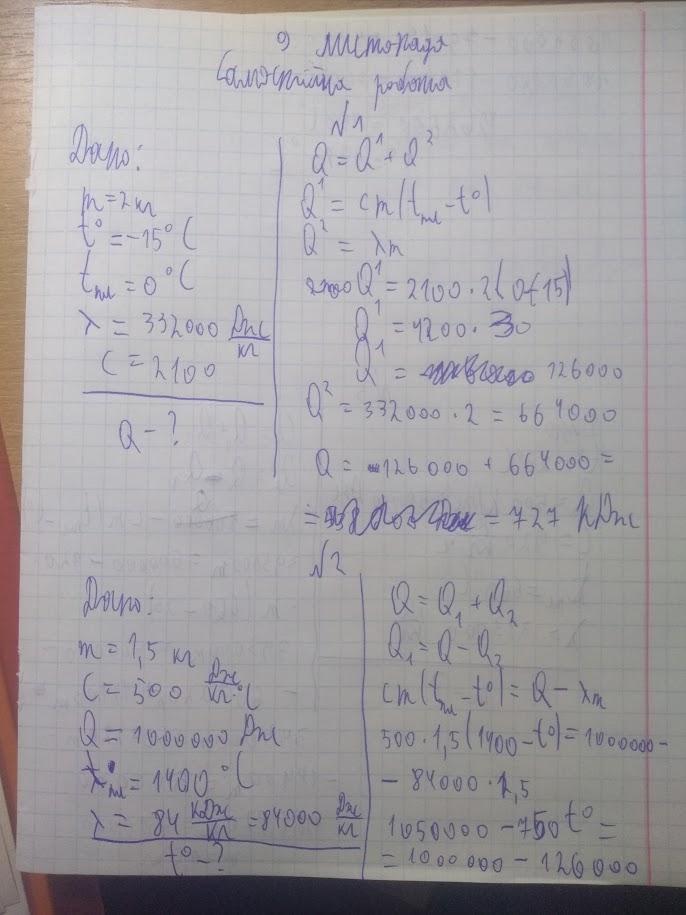 9 листопада
Самостійна робота
№1
Дано:
m = 2 кг
t° = -15°C
tпл = 0°C
λ = 332000 Дж/кг
C = 2100
Q - ?
Q = Q¹ + Q²
Q¹ = cm(tпл - t°)
Q² = λm
Q¹ = 2100 · 2(0+15)
Q¹ = 4200 · 30
Q¹ = 126000
Q² = 332000 · 2 = 664000
Q = 126000 + 664000 =
= 727 кДж
№2
Дано:
m = 1,5 кг
C = 500 Дж/кг·°C
Q = 1000000 Дж
tпл = 1400°C
λ = 84 кДж/кг = 84000 Дж/кг
t° - ?
Q = Q₁ + Q₂
Q₁ = Q - Q₂
cm(tпл - t°) = Q - λm
500 · 1,5(1400 - t°) = 1000000 -
- 84000 · 1,5
1050000 - 750t° =
= 1000000 - 126000